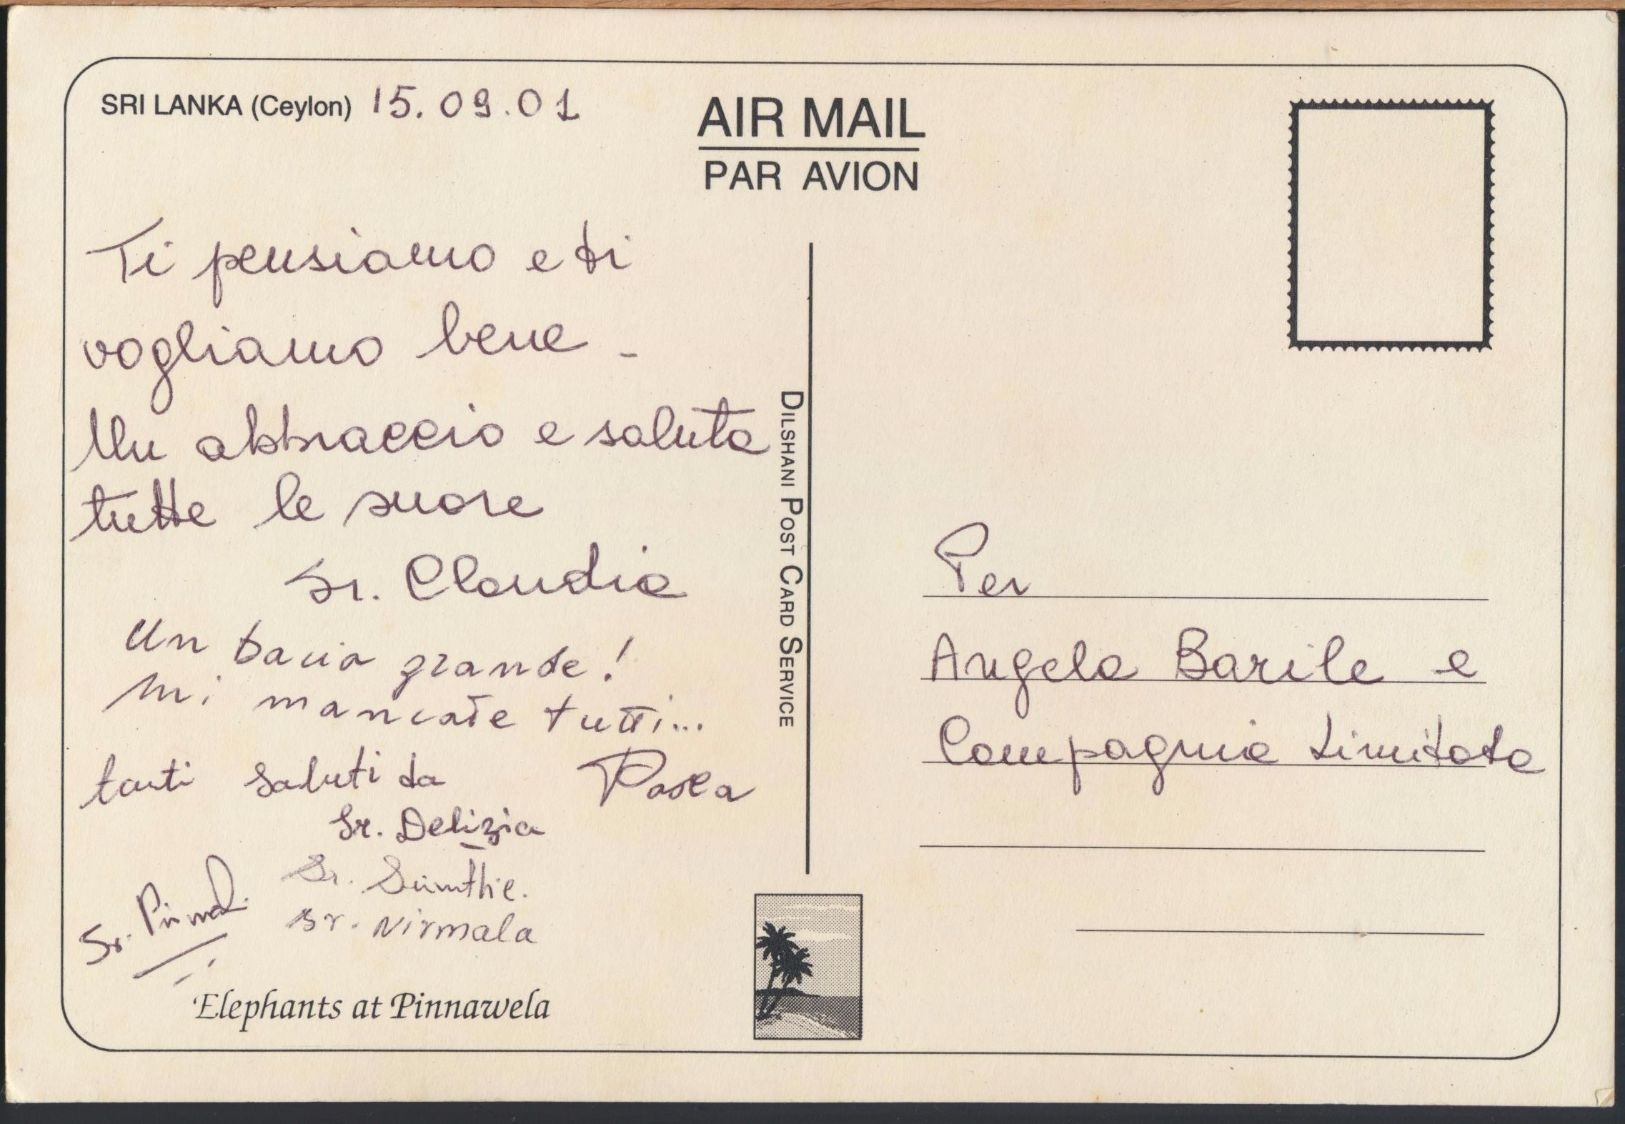 SRI LANKA (Ceylon) 15.09.01
AIR MAIL
PAR AVION
Ti pensiamo e ti
vogliamo bene -
Un abbraccio e saluta
tutte le suore
Sr. Claudia
Un bacio grande!
Mi mancate tutti...
tanti saluti da
Sr. Delizia
Sr.
Sr. Nirmala
Sr.
Elephants at Pinnawela
DILSHANI POST CARD SERVICE
Per
Angela Barile e
Compagnia Limitata